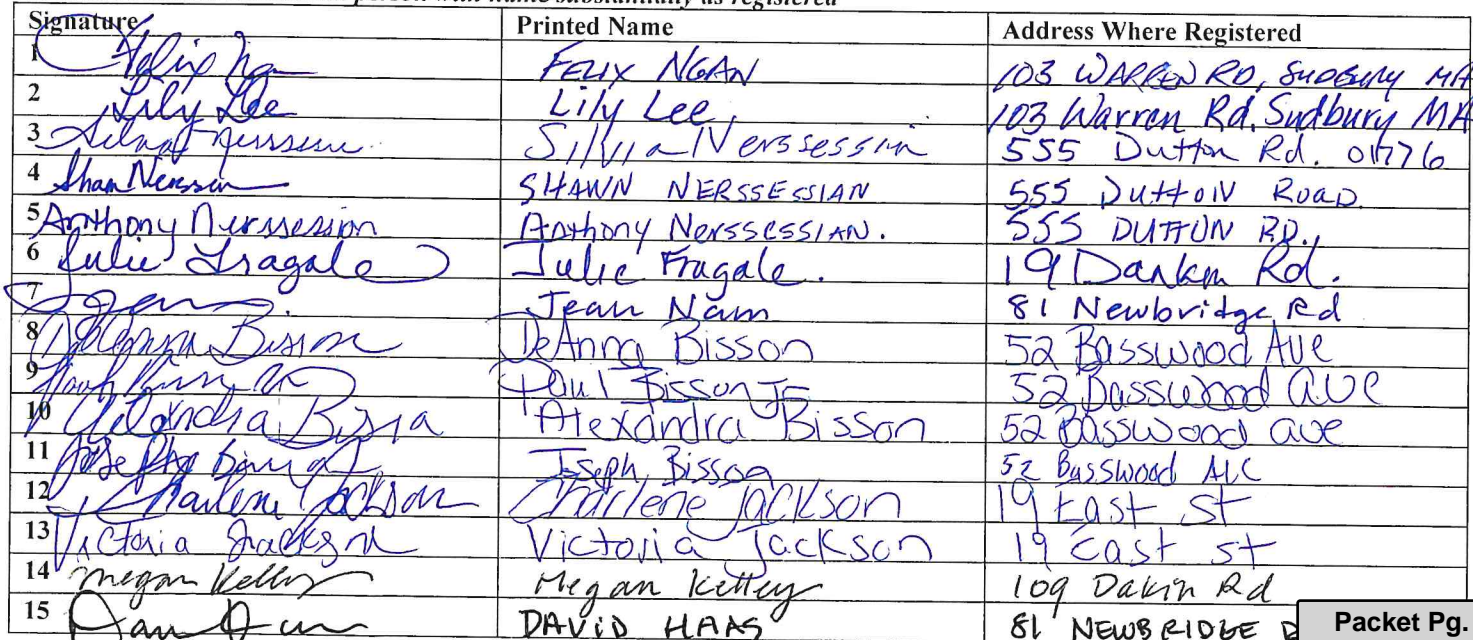 name substantially as registered
Signature Printed Name Address Where Registered
1 Felix Ngan FELIX NGAN 103 WARREN RD, SUDBURY MA
2 Lily Lee Lily Lee 103 Warren Rd. Sudbury MA
3 Silvia Nerssessian 555 Dutton Rd. 01776
4 Shawn Nerssessian SHAWN NERSSESSIAN 555 DUTTON ROAD
5 Anthony Nerssession Anthony NERSSESSIAN. 555 DUTTON RD.,
6 Julie Fragale Julie Fragale. 19 Rd.
7 Jean Nam 81 Newbridge Rd
8 DeAnna Bisson DeAnna Bisson 52 Basswood AVE
9 Paul Bisson Jr 52 Basswood ave
10 Alexandra Bisson Alexandra Bisson 52 Basswood ave
11 Joseph Bisson 52 Basswood
12 Charlene Jackson Charlene Jackson 19 East St
13 Victoria Jackson Victoria Jackson 19 East st
14 Megan Kelley Megan Kelley 109 Dakin Rd
15 DAVID HAAS 81 NEWBRIDGE
Packet Pg.